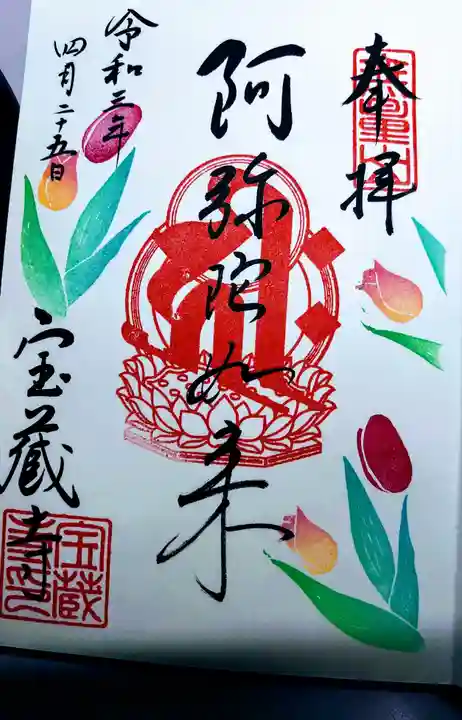 奉拝
阿弥陀如来
令和三年
四月二十五日
宝蔵寺
宝蔵
寺印